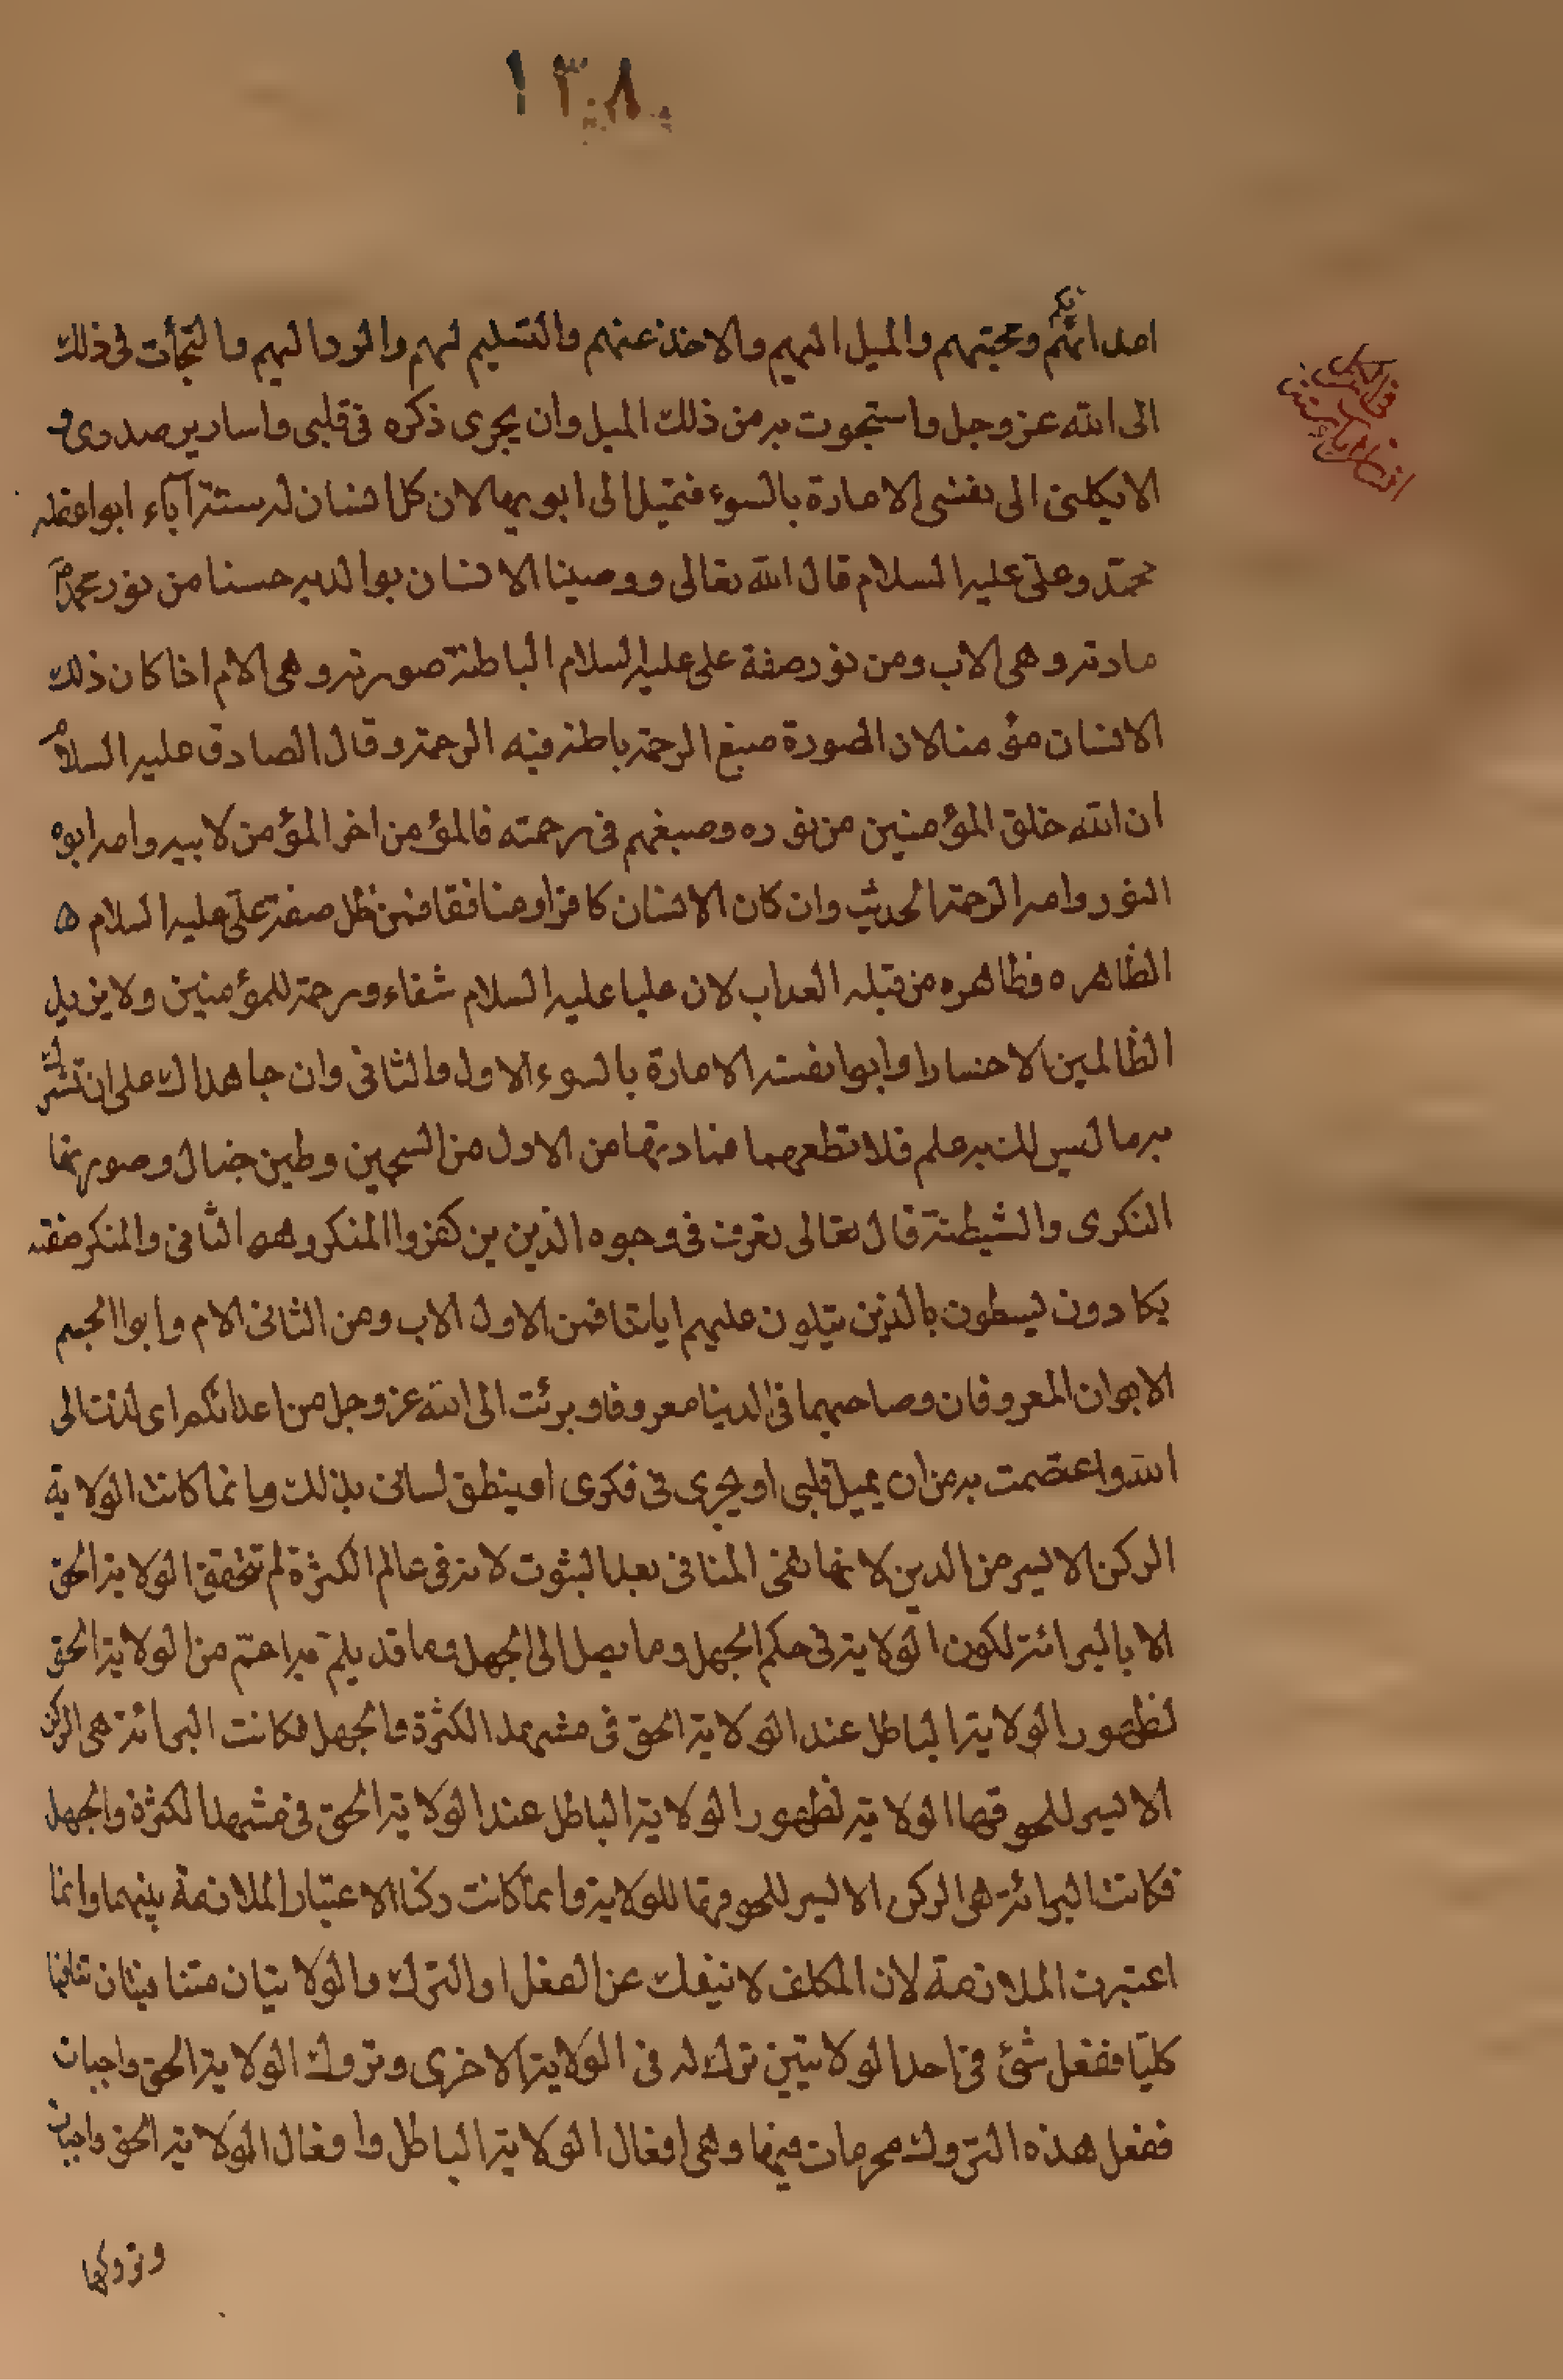 ١٣٠٨
اعدائكم ومحبتهم والميل اليهم والاخذ عنهم والتسليم لهم والرد اليهم والتجأت فى ذلك
الى الله عز وجل واستجرت به من ذلك الميل وان يجرى ذكره فى قلبى واسارير صدرى و
الا يكلنى الى نفسى الامارة بالسوء فتميل الى ابويها لان كل انسان له ستة آباء ابوا عقله
محمد وعلى عليه السلام قال الله تعالى ووصينا الانسان بوالديه حسنا من نور محمد
مادته وهى الاب ومن نور صفة على عليه السلام الباطنة صورته وهى الام اذا كان ذلك
الانسان مؤمنا لان الصورة صبغ الرحمة باطنه فيه الرحمة وقال الصادق عليه السلام
ان الله خلق المؤمنين من نوره وصبغهم فى رحمته فالمؤمن اخو المؤمن لابيه وامه ابوه
النور وامه الرحمة الحديث وان كان الانسان كافرا او منافقا فمن ظل صفة على عليه السلام
الظاهره فظاهره من قبله العذاب لان عليا عليه السلام شفاء ورحمة للمؤمنين ولا يزيد
الظالمين الا خسارا وابوا نفسه الامارة بالسوء الاول والثانى وان جاهداك على ان تشرك
به ما ليس لك به علم فلا تطعهما فمادتها من الاول من السجين وطين خبال وصورتها
النكرى والشيطنة قال تعالى تعرف فى وجوه الذين كفروا المنكر وهو الثانى والمنكر صفته
يكادون يسطون بالذين يتلون عليهم اياتنا فمن الاول الاب ومن الثانى الام وابوا الجسم
الابوان المعروفان وصاحبهما فى الدنيا معروفا وبرئت الى الله عز وجل من اعدائكم اى لذت الى
الله واعتصمت به من ان يميل قلبى او يجرى فى فكرى او ينطق لسانى بذلك وانما كانت الولاية
الركن الايسر من الدين لانها نفى المنافى بعد الثبوت لانه فى عالم الكثرة لم تتحقق الولاية الحق
الا بالبرائة لكون الولاية فى حكم الجهل وما يصل الى الجهل وما قد يلم به اعم من الولاية الحق
لظهور الولاية الباطل عند الولاية الحق فى مشهد الكثرة والجهل فكانت البرائة هى الركن
الايسر للحوقها الولاية لظهور الولاية الباطل عند الولاية الحق فى مشهد الكثرة والجهل
فكانت البرائة هى الركن الايسر للحوقها للولاية وانما كانت ركنا لاعتبار الملازمة بينهما وانما
اعتبرت الملازمة لان المكلف لا ينفك عن الفعل او الترك والولايتان متنافيتان تنافيا
كليا ففعل شئ فى احد الولايتين ترك له فى الولاية الاخرى وتروك الولاية الحق واجبات
ففعل هذه التروك محرمات فيها وهى افعال الولاية الباطل وافعال الولاية الحق واجبات
وتروكها